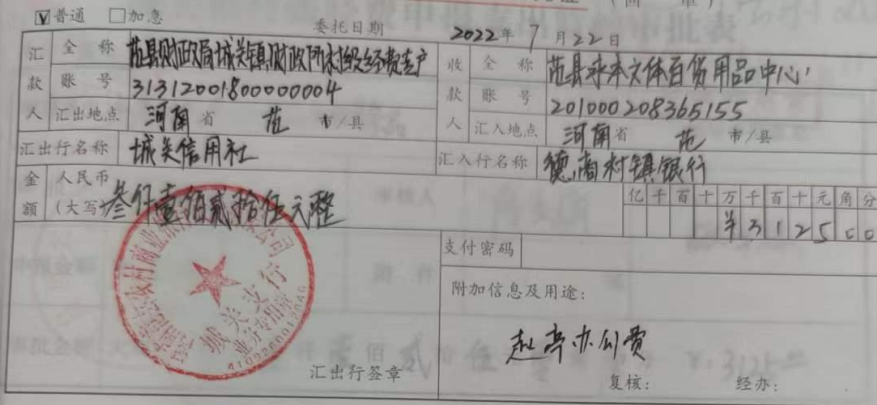 ☑普通 □加急
委托日期 2022年7月22日
汇款人
全称 范县财政局城关镇财政所村级经费专户
账号 31312001800000004
汇出地点 河南省 范 市/县
汇出行名称 城关信用社
收款人
全称 范县未来文体百货用品中心
账号 201000208365155
汇入地点 河南省 范 市/县
汇入行名称 德商村镇银行
金额 人民币(大写) 叁仟壹佰贰拾伍元整
亿千百十万千百十元角分
¥312500
城关支行
业务专用章
汇出行签章
支付密码
附加信息及用途:
赵亭办公费
复核: 经办: